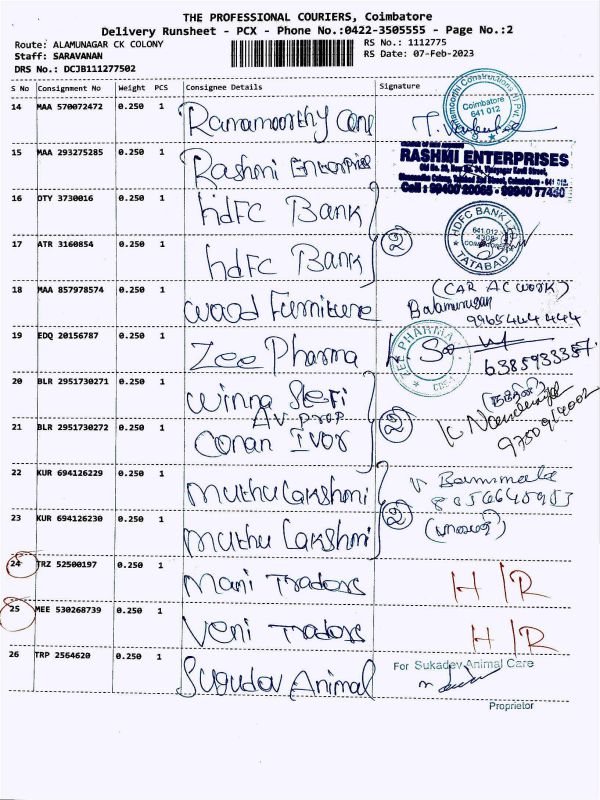 THE PROFESSIONAL COURIERS, Coimbatore
Delivery Runsheet - PCX - Phone No.:0422-3505555 - Page No.:2
Route: ALAMUNAGAR CK COLONY RS No.: 1112775
Staff: SARAVANAN RS Date: 07-Feb-2023
DRS No.: DCJB111277502
S No Consignment No Weight PCS Consignee Details Signature
14 MAA 570072472 0.250 1 Ramamoorthy Cone
Coimbatore
641 012
15 MAA 293275285 0.250 1 Rashmi Enterprises
RASHMI ENTERPRISES
Cell : 99400 20065 - 99940 77450
16 DTY 3730016 0.250 1 hdFC Bank
HDFC BANK LTD
641 012
COIMBATORE
TATABAD
17 ATR 3160854 0.250 1 hdFC Bank 2
18 MAA 857978574 0.250 1 wood Furniture (CAR AC WORK)
Balamurugan
9965464444
19 EDQ 20156787 0.250 1 Zee Pharma
ZEE PHARMA
CBE-1
6385933357
20 BLR 2951730271 0.250 1 Winna Stefi
AV Prop 2
21 BLR 2951730272 0.250 1 Conan Ivor
9750914002
22 KUR 694126229 0.250 1 Muthu Lakshmi
23 KUR 694126230 0.250 1 Muthu Lakshmi 2
24 TRZ 52500197 0.250 1 Mani Tradors H/R
25 MEE 530268739 0.250 1 Veni Tradors H/R
26 TRP 2564620 0.250 1 Sugudev Animal For Sukadev Animal Care
Proprietor